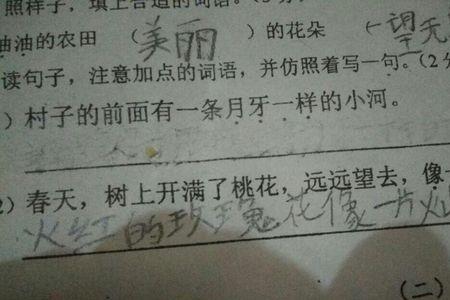 照样子，填上合适的词语。
油油的农田 （美丽）的花朵 （一望无
读句子，注意加点的词语，并仿照着写一句。（2分
）村子的前面有一条月牙一样的小河。
2）春天，树上开满了桃花，远远望去，像
火红的玫瑰花像一片火
（二）